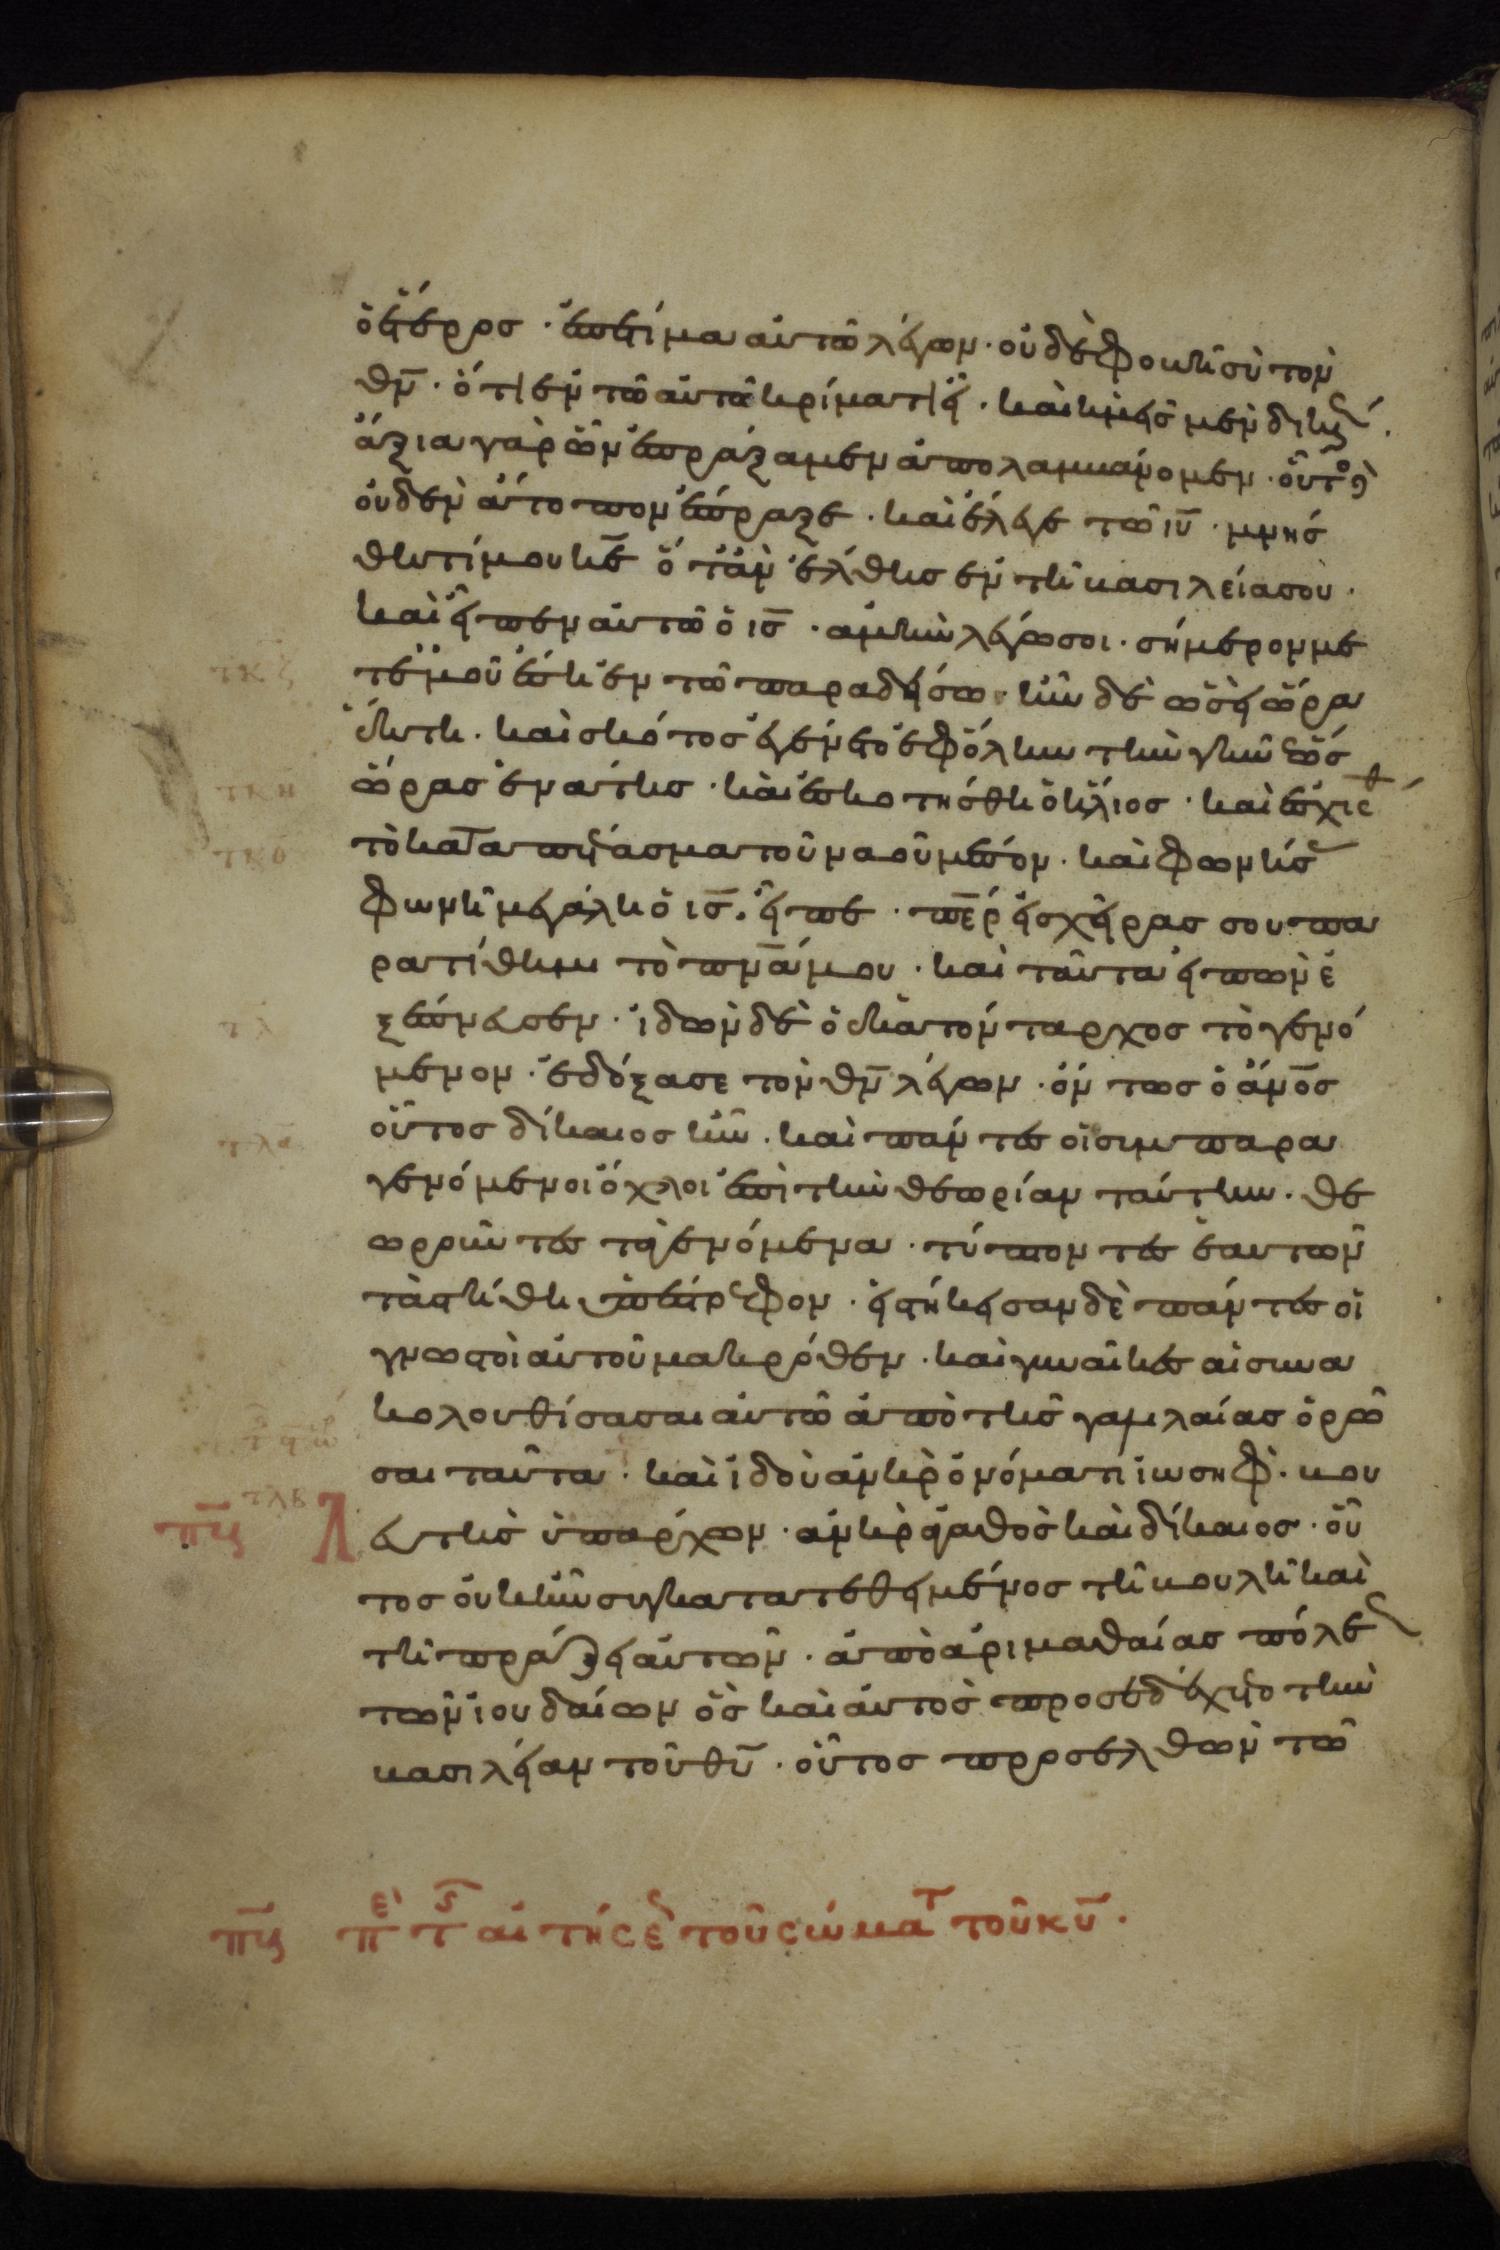 ὁ ἕτερος · ἐπετίμα αὐτῶ λέγων · οὐδὲ φοβῆ σὺ τὸν
θν̅ · ὅτι ἐν τῶ αὐτῶ κρίματι εἶ · καὶ ἡμεῖς μὲν δικαί
ἄξια γὰρ ὧν ἐπράξαμεν ἀπολαμβάνομεν · οὗτο δὲ
οὐδὲν ἄτοπον ἔπραξε · καὶ ἔλεγε τῶ ιυ̅ · μνήσ
θητί μου κε̅ ὅτἂν ἔλθης ἐν τῆ βασιλεία σου ·
καὶ εἶπεν αὐτῶ ὁ ις̅ · ἀμὴν λέγω σοι · σήμερον με
τεμοῦ ἔση ἐν τῶ παραδείσω · ἦν δὲ ὡσεὶ ὥρα
ἕκτη · καὶ σκότος ἐγένετο ἐφόλην τὴν γῆν ἕως
ὥρας ἐνάτης · καὶ ἐσκοτήσθη ὁ ἥλιος · καὶ ἐσχίσθ
τὸ καταπέτασμα τοῦ ναοῦ μέσον · καὶ φωνήσ
φωνῆ μεγάλη ὁ ις̅ · εἶπε · πε̅ρ εἰς χεῖρας σου πα
ρατίθημι τὸ πνα̅ μου · καὶ ταῦτα εἰπὼν ἐ
ξέπνευσεν · ἰδὼν δὲ ὁ ἑκατόνταρχος τὸ γενό
μενον · ἐδόξασε τὸν θν̅ λέγων · ὄντως ὁ ἄνο̅ς
οὗτος δίκαιος ἦν · καὶ πάντες οἱ συμπαρα
γενόμενοι ὄχλοι ἐπὶ τὴν θεωρίαν ταύτην · θε
ωροῦντες τὰ γενόμενα · τύπτοντες ἑαυτῶν
τὰ στήθη ὑπέστρεφον · εἱστήκεισαν δὲ πάντες οἱ
γνωστοὶ αὐτοῦ μακρόθεν · καὶ γυναῖκες αἱ συνα
κολουθήσασαι αὐτῶ ἀπὸ τῆς γαλιλαίας ὁρῶ
σαι ταῦτα · καὶ ἰδοὺ ἀνὴρ ὀνόματι ἰωσὴφ · βου
λευτὴς ὑπάρχων · ἀνὴρ ἀγαθὸς καὶ δίκαιος · οὗ
τος οὐκ ἦν συγκατατεθειμένος τῆ βουλῆ καὶ
τῆ πράξει αὐτῶν · ἀπὸ ἀριμαθαίας πόλε
τῶν ἰουδαίων ὃς καὶ αὐτὸς προσεδέχετο τὴν
βασιλείαν τοῦ θυ̅ · οὗτος προσελθὼν τῶ
τκζ
τκη
τκθ
τλ
τλα
τλβ
πγ̅
πγ̅ πε̅ρὶ τ̅ς αἰτήσε τοῦ σώματ τοῦ κυ̅ ·